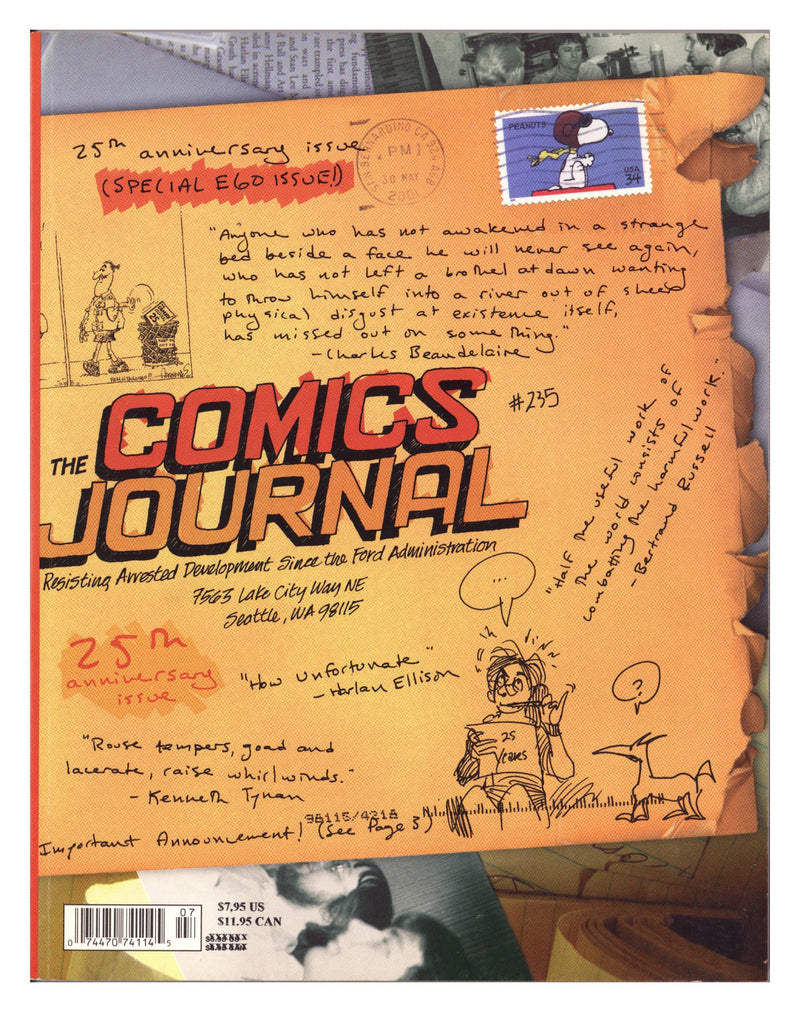 25th anniversary issue
(SPECIAL EGO ISSUE!)
SAN BERNARDINO CA 924
PM
30 MAY
2001
PEANUTS
USA
34
"Anyone who has not awakened in a strange
bed beside a face he will never see again,
who has not left a brothel at dawn wanting
to throw himself into a river out of sheer
physical disgust at existence itself,
has missed out on something."
- Charles Beaudelaire
25
THE
COMICS
JOURNAL
#235
Resisting Arrested Development Since the Ford Administration
7563 Lake City Way NE
Seattle, WA 98115
"Half the useful work of
the world consists of
combatting the harmful work."
- Bertrand Russell
25th
anniversary
issue
"How Unfortunate"
- Harlan Ellison
...
?
25
Years
"Rouse tempers, goad and
lacerate, raise whirlwinds."
- Kenneth Tynan
98115/4218
Important Announcement! (See Page 3)
07
0 74470 74114 5
$7.95 US
$11.95 CAN